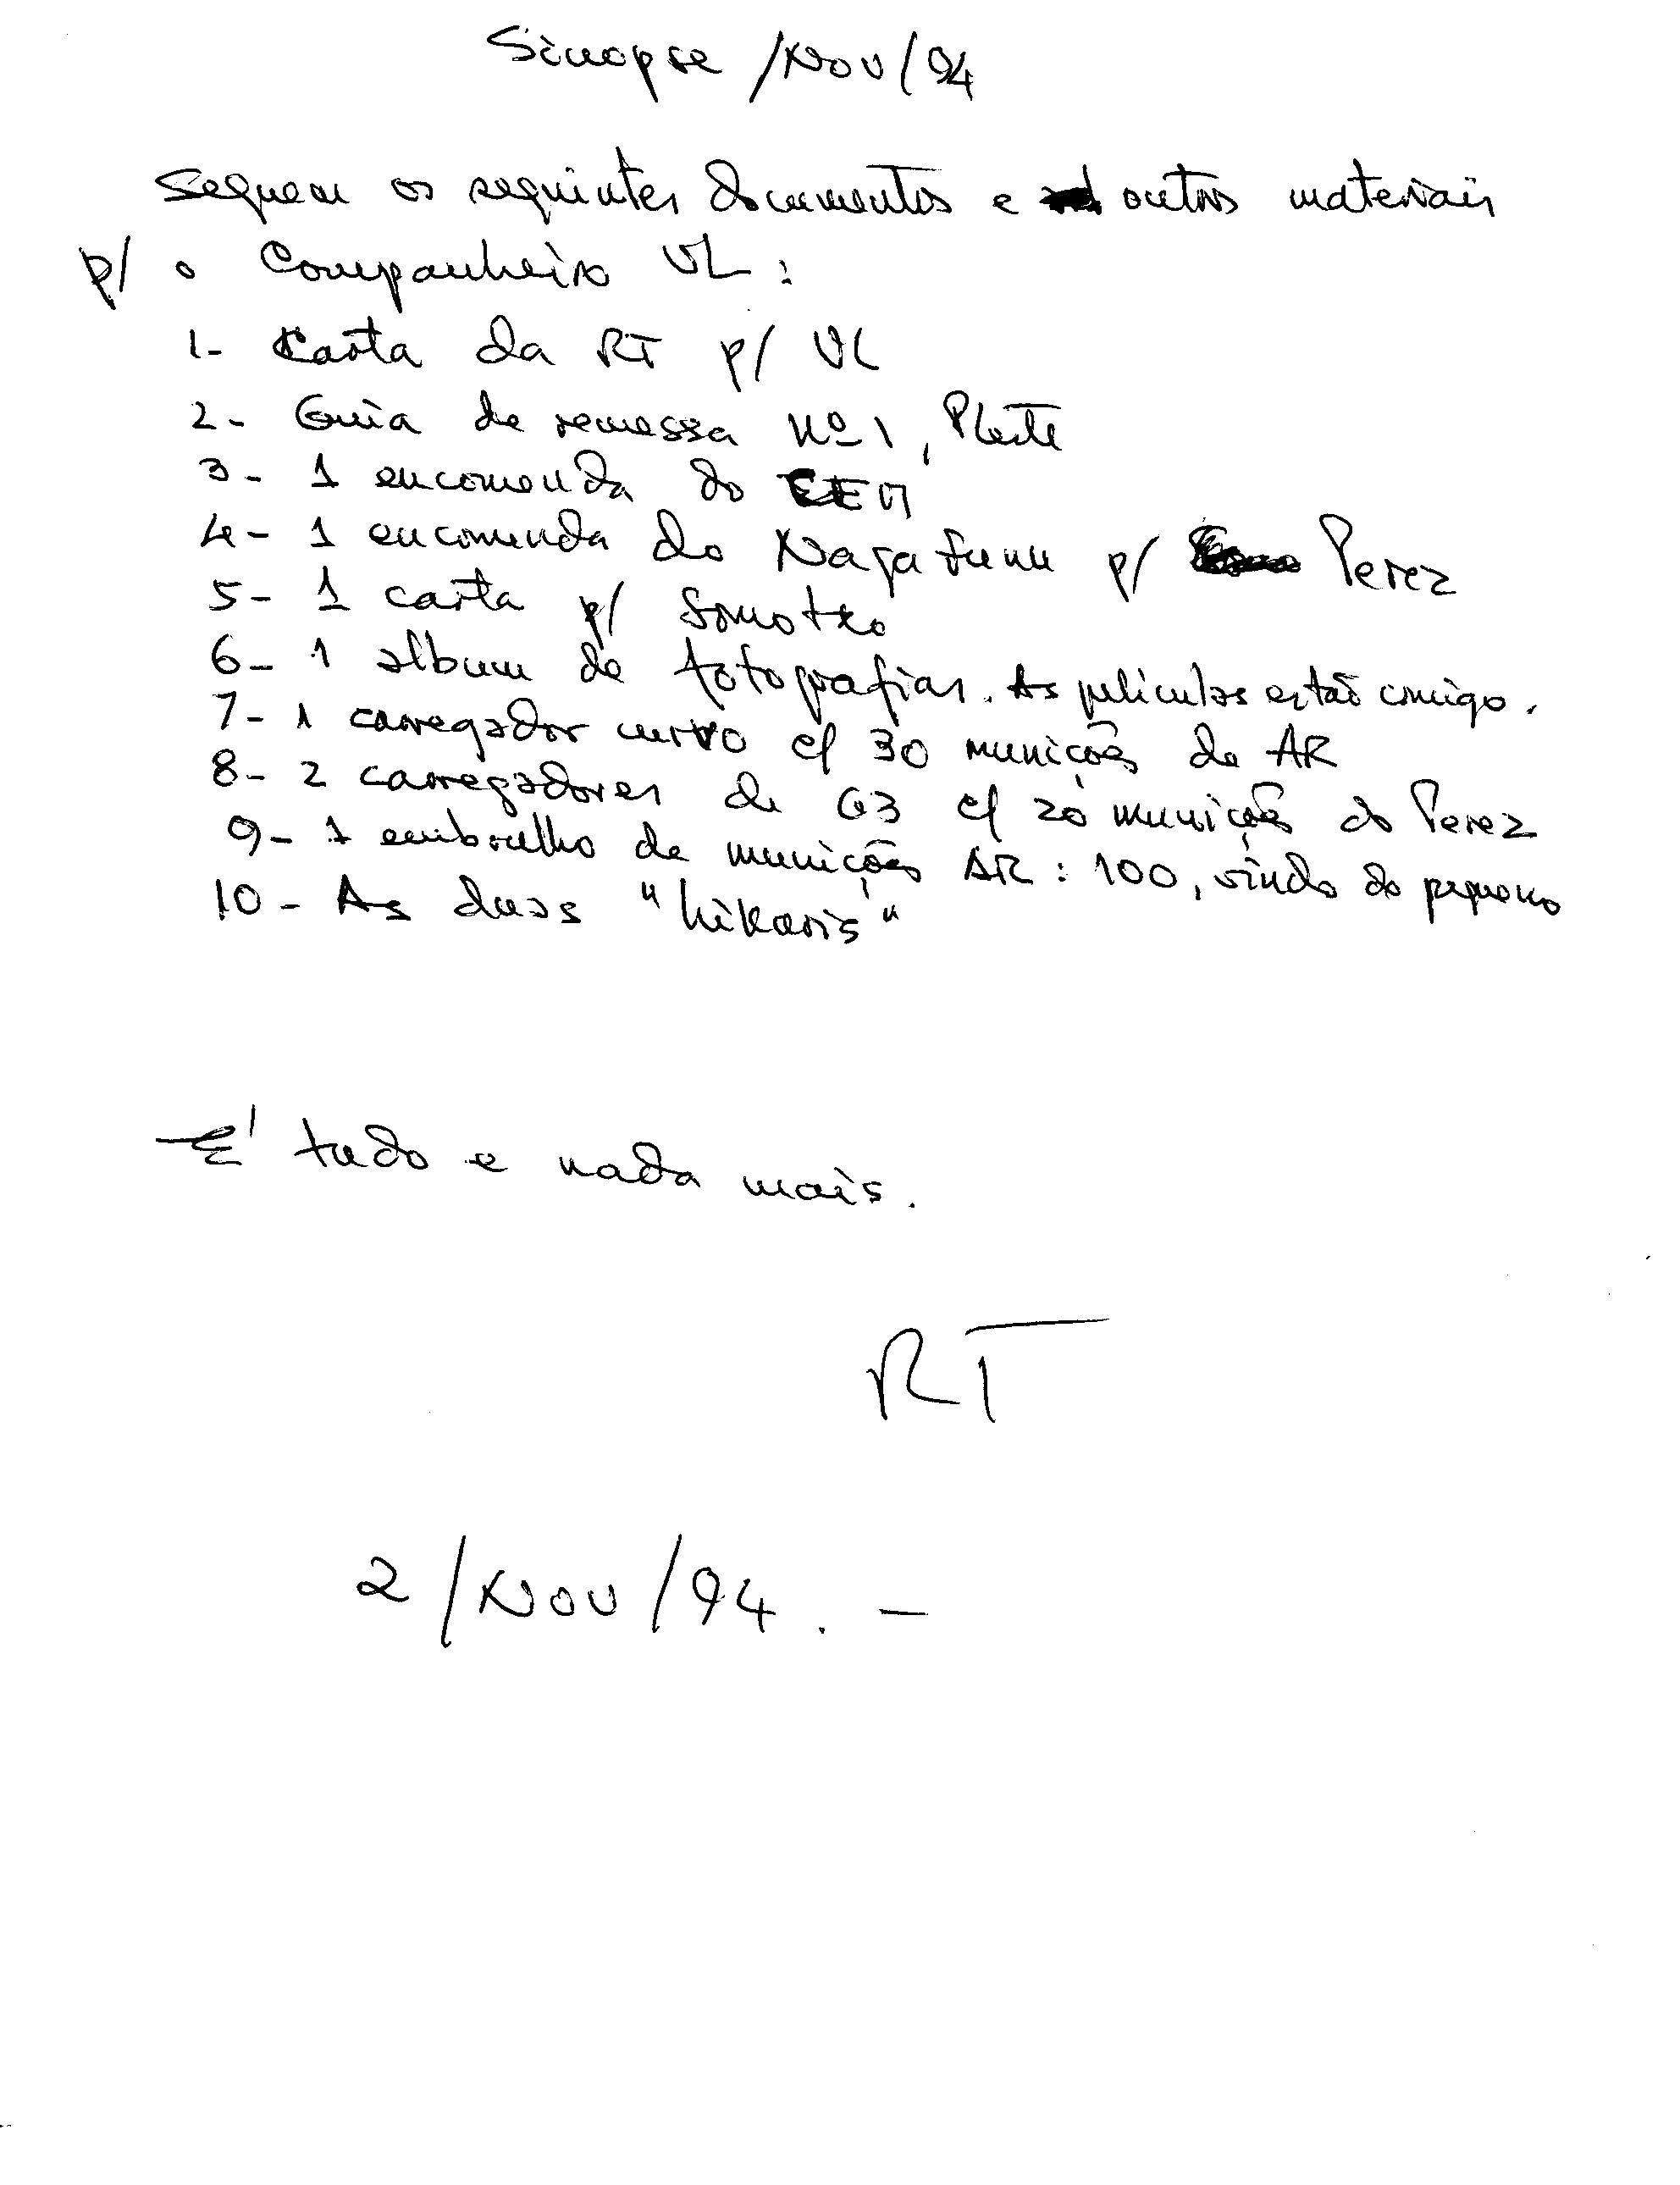 Sinopse /Nov/94
Seguem os seguintes documentos e outros materiais
p/ o Companheiro VL:
1- Carta da RT p/ VL
2- Guia de remessa nº 1,
3- 1 encomenda do
4- 1 encomenda do p/ Perez
5- 1 carta p/
6- 1 album de fotografias. As peliculas estão comigo.
7- 1 carregador curvo c/ 30 munições de AR
8- 2 carregadores de G3 c/ 20 munições do Perez
9- 1 embrulho de munições AR: 100, vindo do pequeno
10- As duas "hikaris"
É tudo e nada mais.
RT
2/Nov/94. -